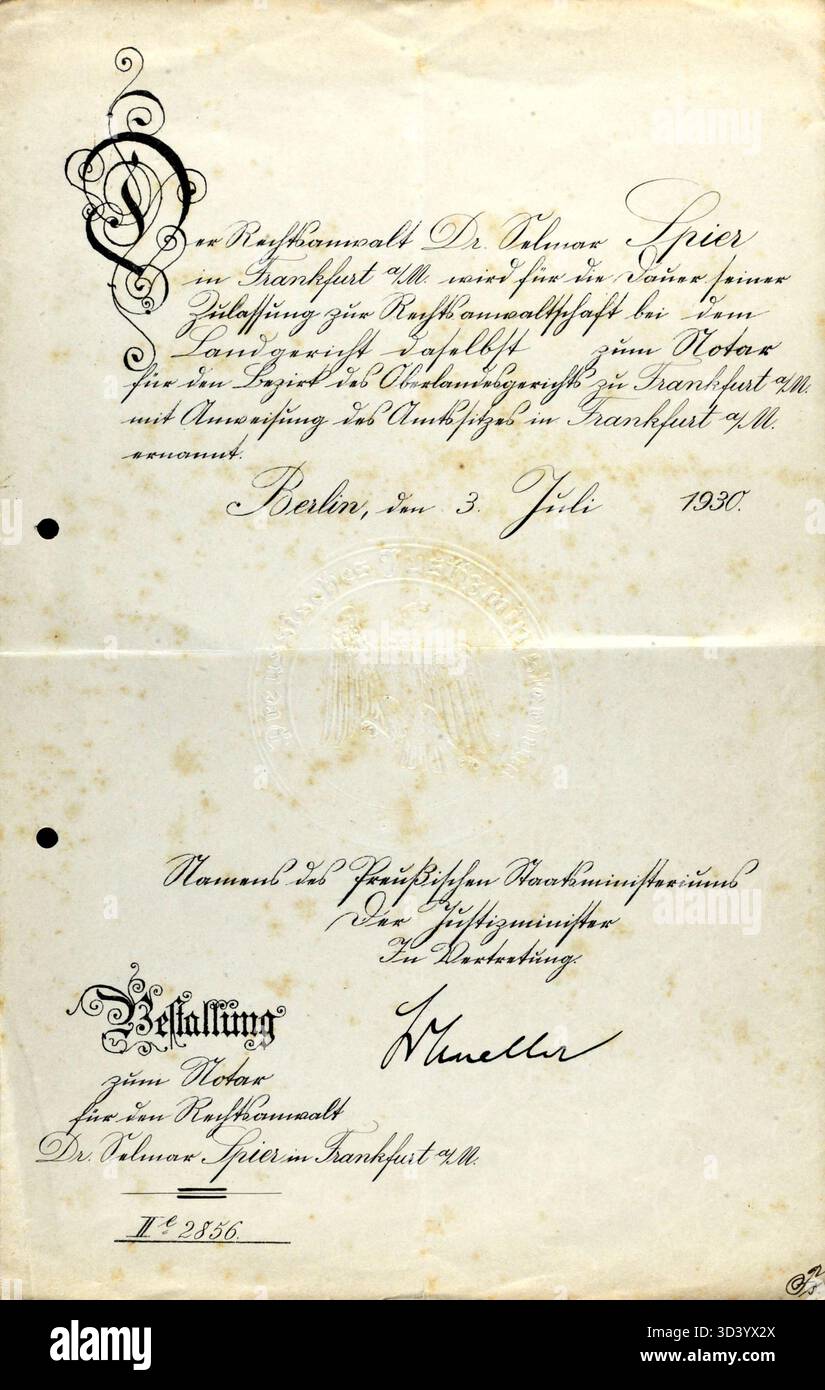 Der Rechtsanwalt Dr. Selmar Spier
in Frankfurt a/M. wird für die Dauer seiner
Zulassung zur Rechtsanwaltschaft bei dem
Landgericht daselbst zum Notar
für den Bezirk des Oberlandesgerichts zu Frankfurt a/M.
mit Anweisung des Amtssitzes in Frankfurt a/M.
ernannt.
Berlin, den 3. Juli 1930.
Preussisches Justizministerium
Namens des Preußischen Staatsministeriums
Der Justizminister
In Vertretung.
Bestallung
zum Notar
für den Rechtsanwalt
Dr. Selmar Spier in Frankfurt a/M.
II e 2856.
alamy
Image ID: 3D3YX2X
www.alamy.com